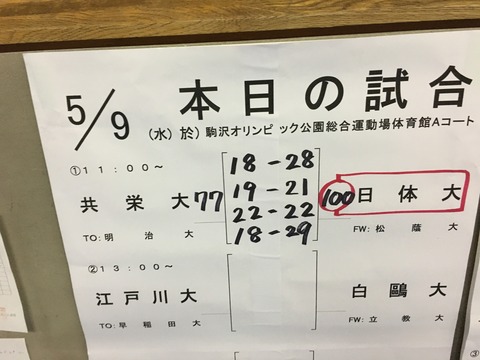 5/9 本日の試合
(水) 於) 駒沢オリンピック公園総合運動場体育館Aコート
①11:00~
18-28
共栄大 77 19-21 100 日体大
22-22
TO:明治大 18-29 FW:松蔭大
②13:00~
江戸川大 白鷗大
TO:早稲田大 FW:立教大
③